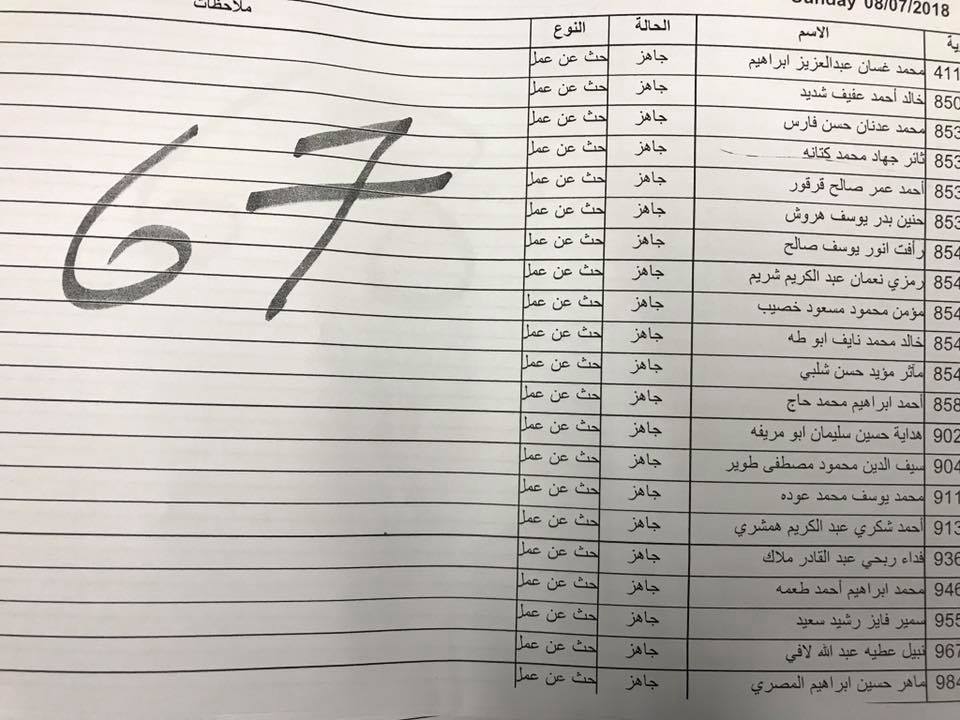 Sunday 08/07/2018
ملاحظات
ية الاسم الحالة النوع
411 محمد غسان عبدالعزيز ابراهيم جاهز حث عن عمل
850 خالد أحمد عفيف شديد جاهز حث عن عمل
853 محمد عدنان حسن فارس جاهز حث عن عمل
853 ثائر جهاد محمد كتانه جاهز حث عن عمل
853 أحمد عمر صالح قرقور جاهز حث عن عمل
853 حنين بدر يوسف هروش جاهز حث عن عمل
854 رأفت انور يوسف صالح جاهز حث عن عمل
854 رمزي نعمان عبد الكريم شريم جاهز حث عن عمل
854 مؤمن محمود مسعود خصيب جاهز حث عن عمل
854 خالد محمد نايف ابو طه جاهز حث عن عمل
854 مآثر مؤيد حسن شلبي جاهز حث عن عمل
858 أحمد ابراهيم محمد حاج جاهز حث عن عمل
902 هداية حسين سليمان ابو مريفه جاهز حث عن عمل
904 سيف الدين محمود مصطفى طوير جاهز حث عن عمل
911 محمد يوسف محمد عوده جاهز حث عن عمل
913 أحمد شكري عبد الكريم همشري جاهز حث عن عمل
936 فداء ربحي عبد القادر ملاك جاهز حث عن عمل
946 محمد ابراهيم أحمد طعمه جاهز حث عن عمل
955 سمير فايز رشيد سعيد جاهز حث عن عمل
967 نبيل عطيه عبد الله لافي جاهز حث عن عمل
984 ماهر حسين ابراهيم المصري جاهز حث عن عمل
67